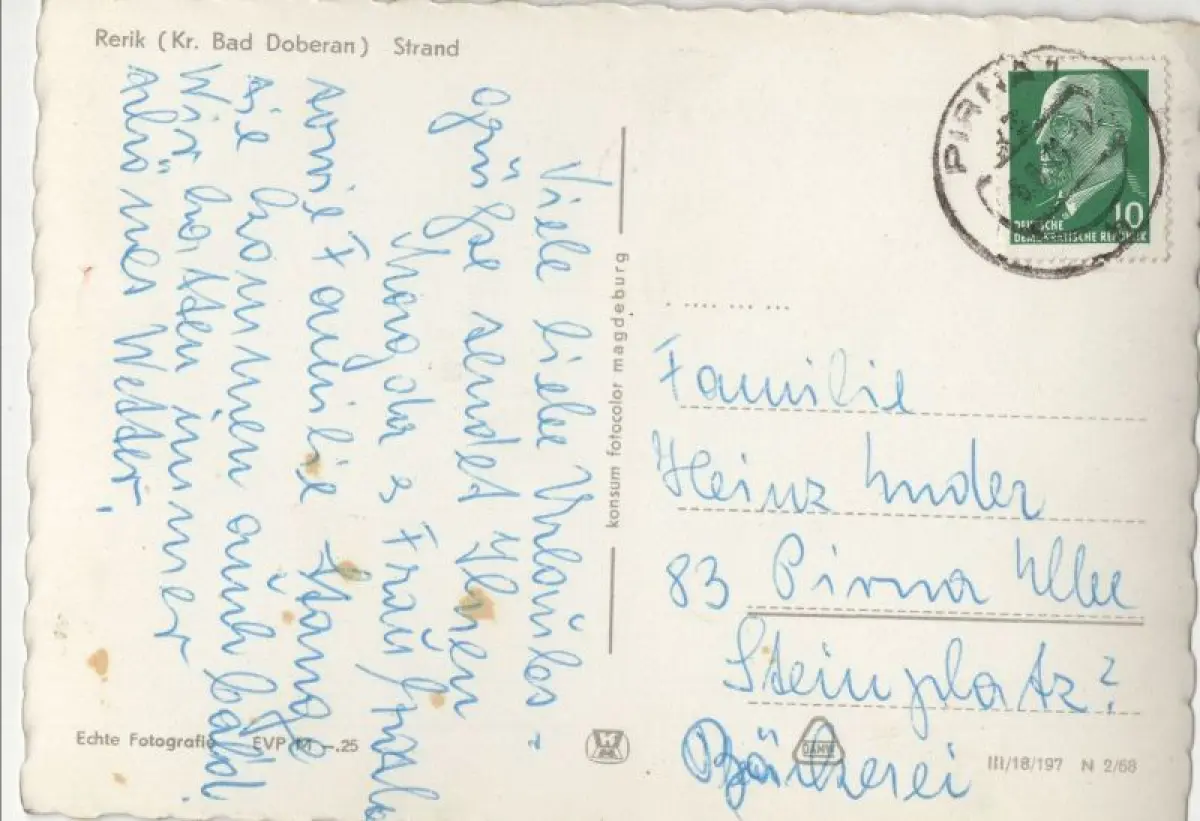 Rerik (Kr. Bad Doberan) Strand
Viele liebe Urlaubs-
grüße sendet Ihnen
Magda & Frau
sowie Familie Stange
sie kommen auch bald.
Wir hatten immer
schönes Wetter.
konsum fotocolor magdeburg
PIRNA 1
10
DEUTSCHE
DEMOKRATISCHE REPUBLIK
Familie
Heinz
83 Pirna Elbe
Steinplatz?
Bäckerei
Echte Fotografie EVP M -.25
DAHW
III/18/197 N 2/68